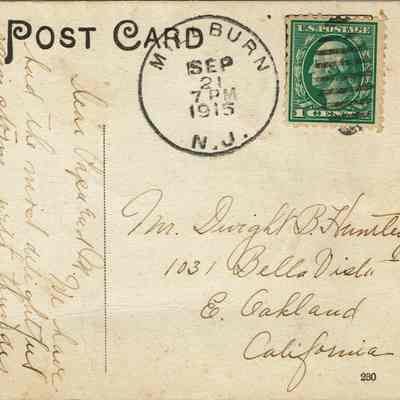 POST CARD
MILLBURN
SEP
21
7 PM
1915
N.J.
U.S. POSTAGE
1 CENT 1
Mr. Dwight B. Huntley
1031 Bella Vista
E. Oakland
California
280
Dear
We have
had the most delightful